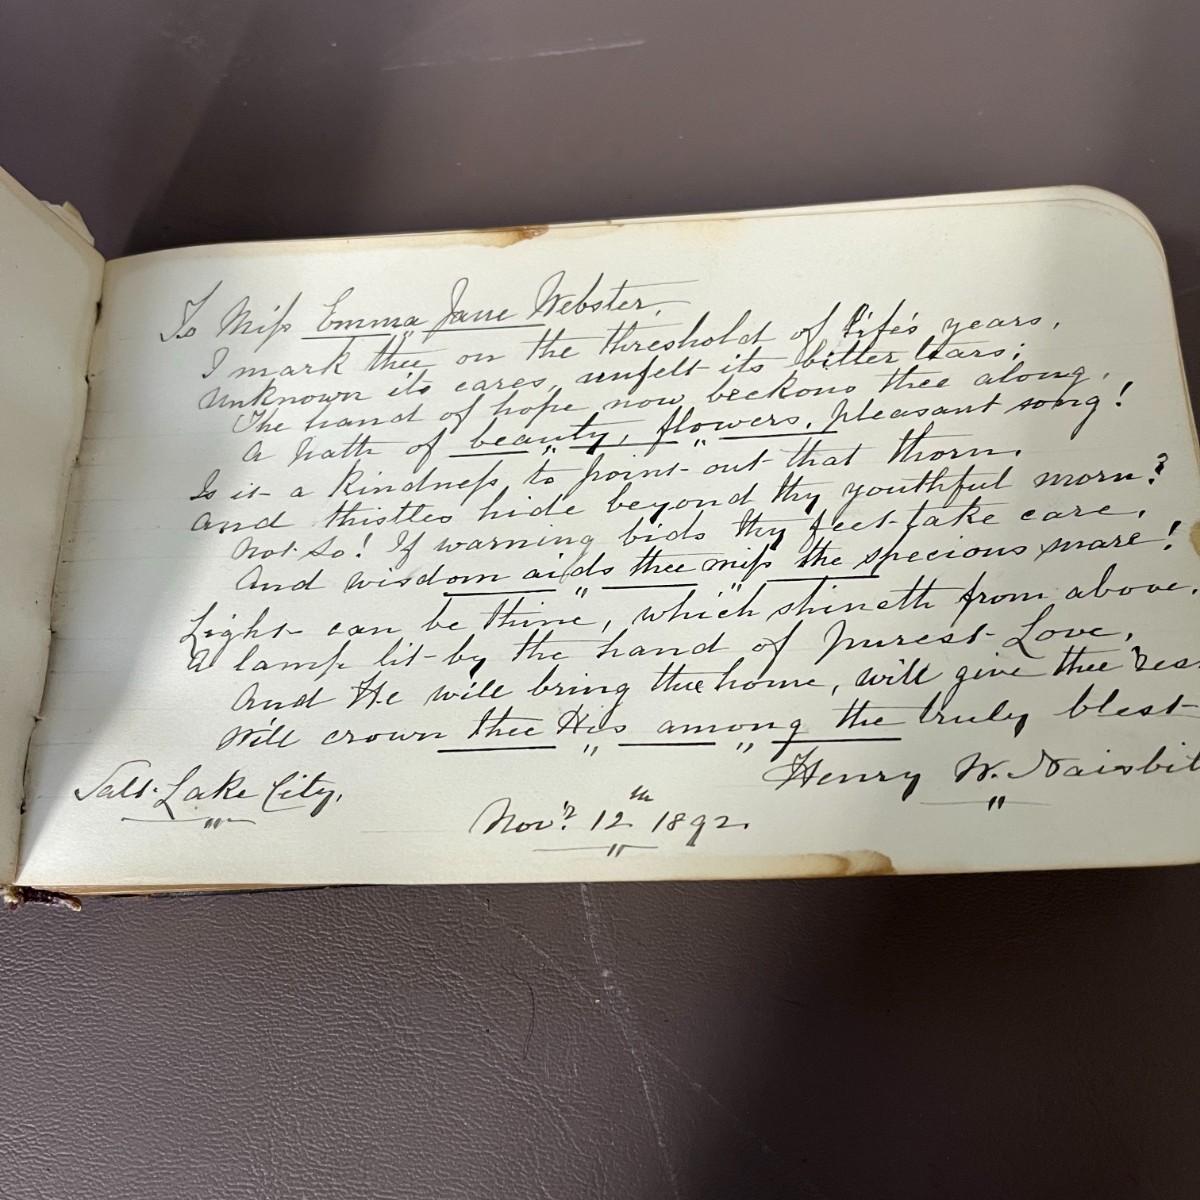 To Miss Emma Jane Webster,
I mark thee on the threshold of life's years,
Unknown its cares, unfelt its bitter tears;
The hand of hope now beckons thee along,
A path of beauty, flowers, pleasant song!
Is it a kindness, to point out that thorn,
And thistles hide beyond thy youthful morn?
Not so! If warning bids thy feet take care,
And wisdom aids thee miss the specious snare!
Light can be thine, which shineth from above,
A lamp lit by the hand of purest Love,
And He will bring thee home, will give thee res
Will crown thee His among the truly blest
Henry W. Naisbit
Salt Lake City,
Novr. 12th 1892.